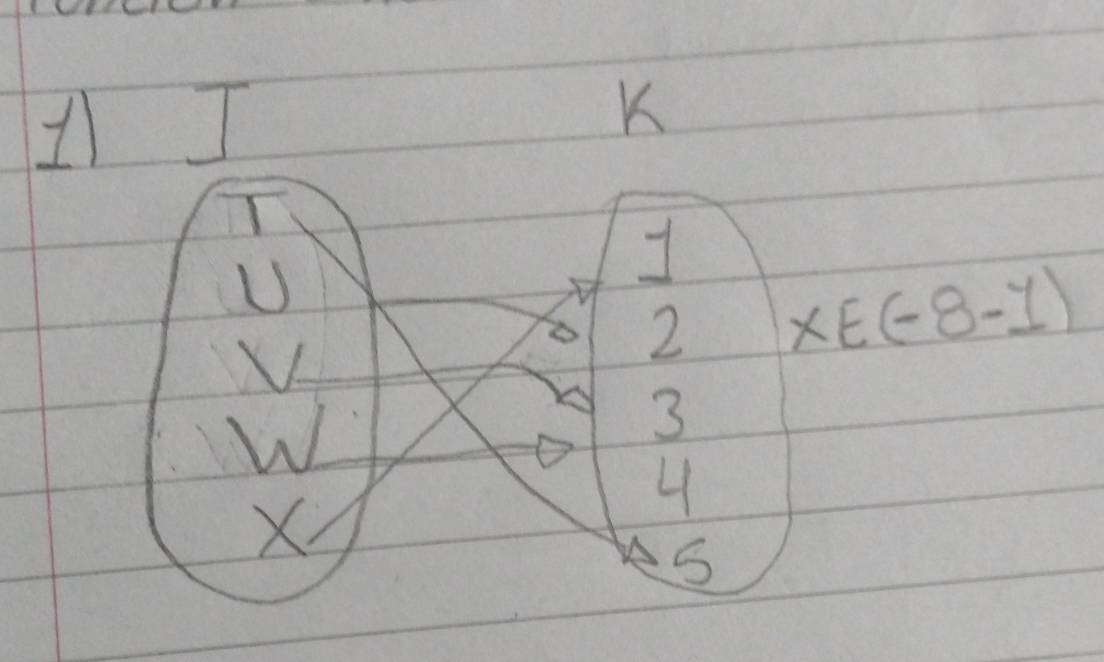 función
1) J K
T 1
U 2
V 3
W 4
X 5
XE(-8-1)